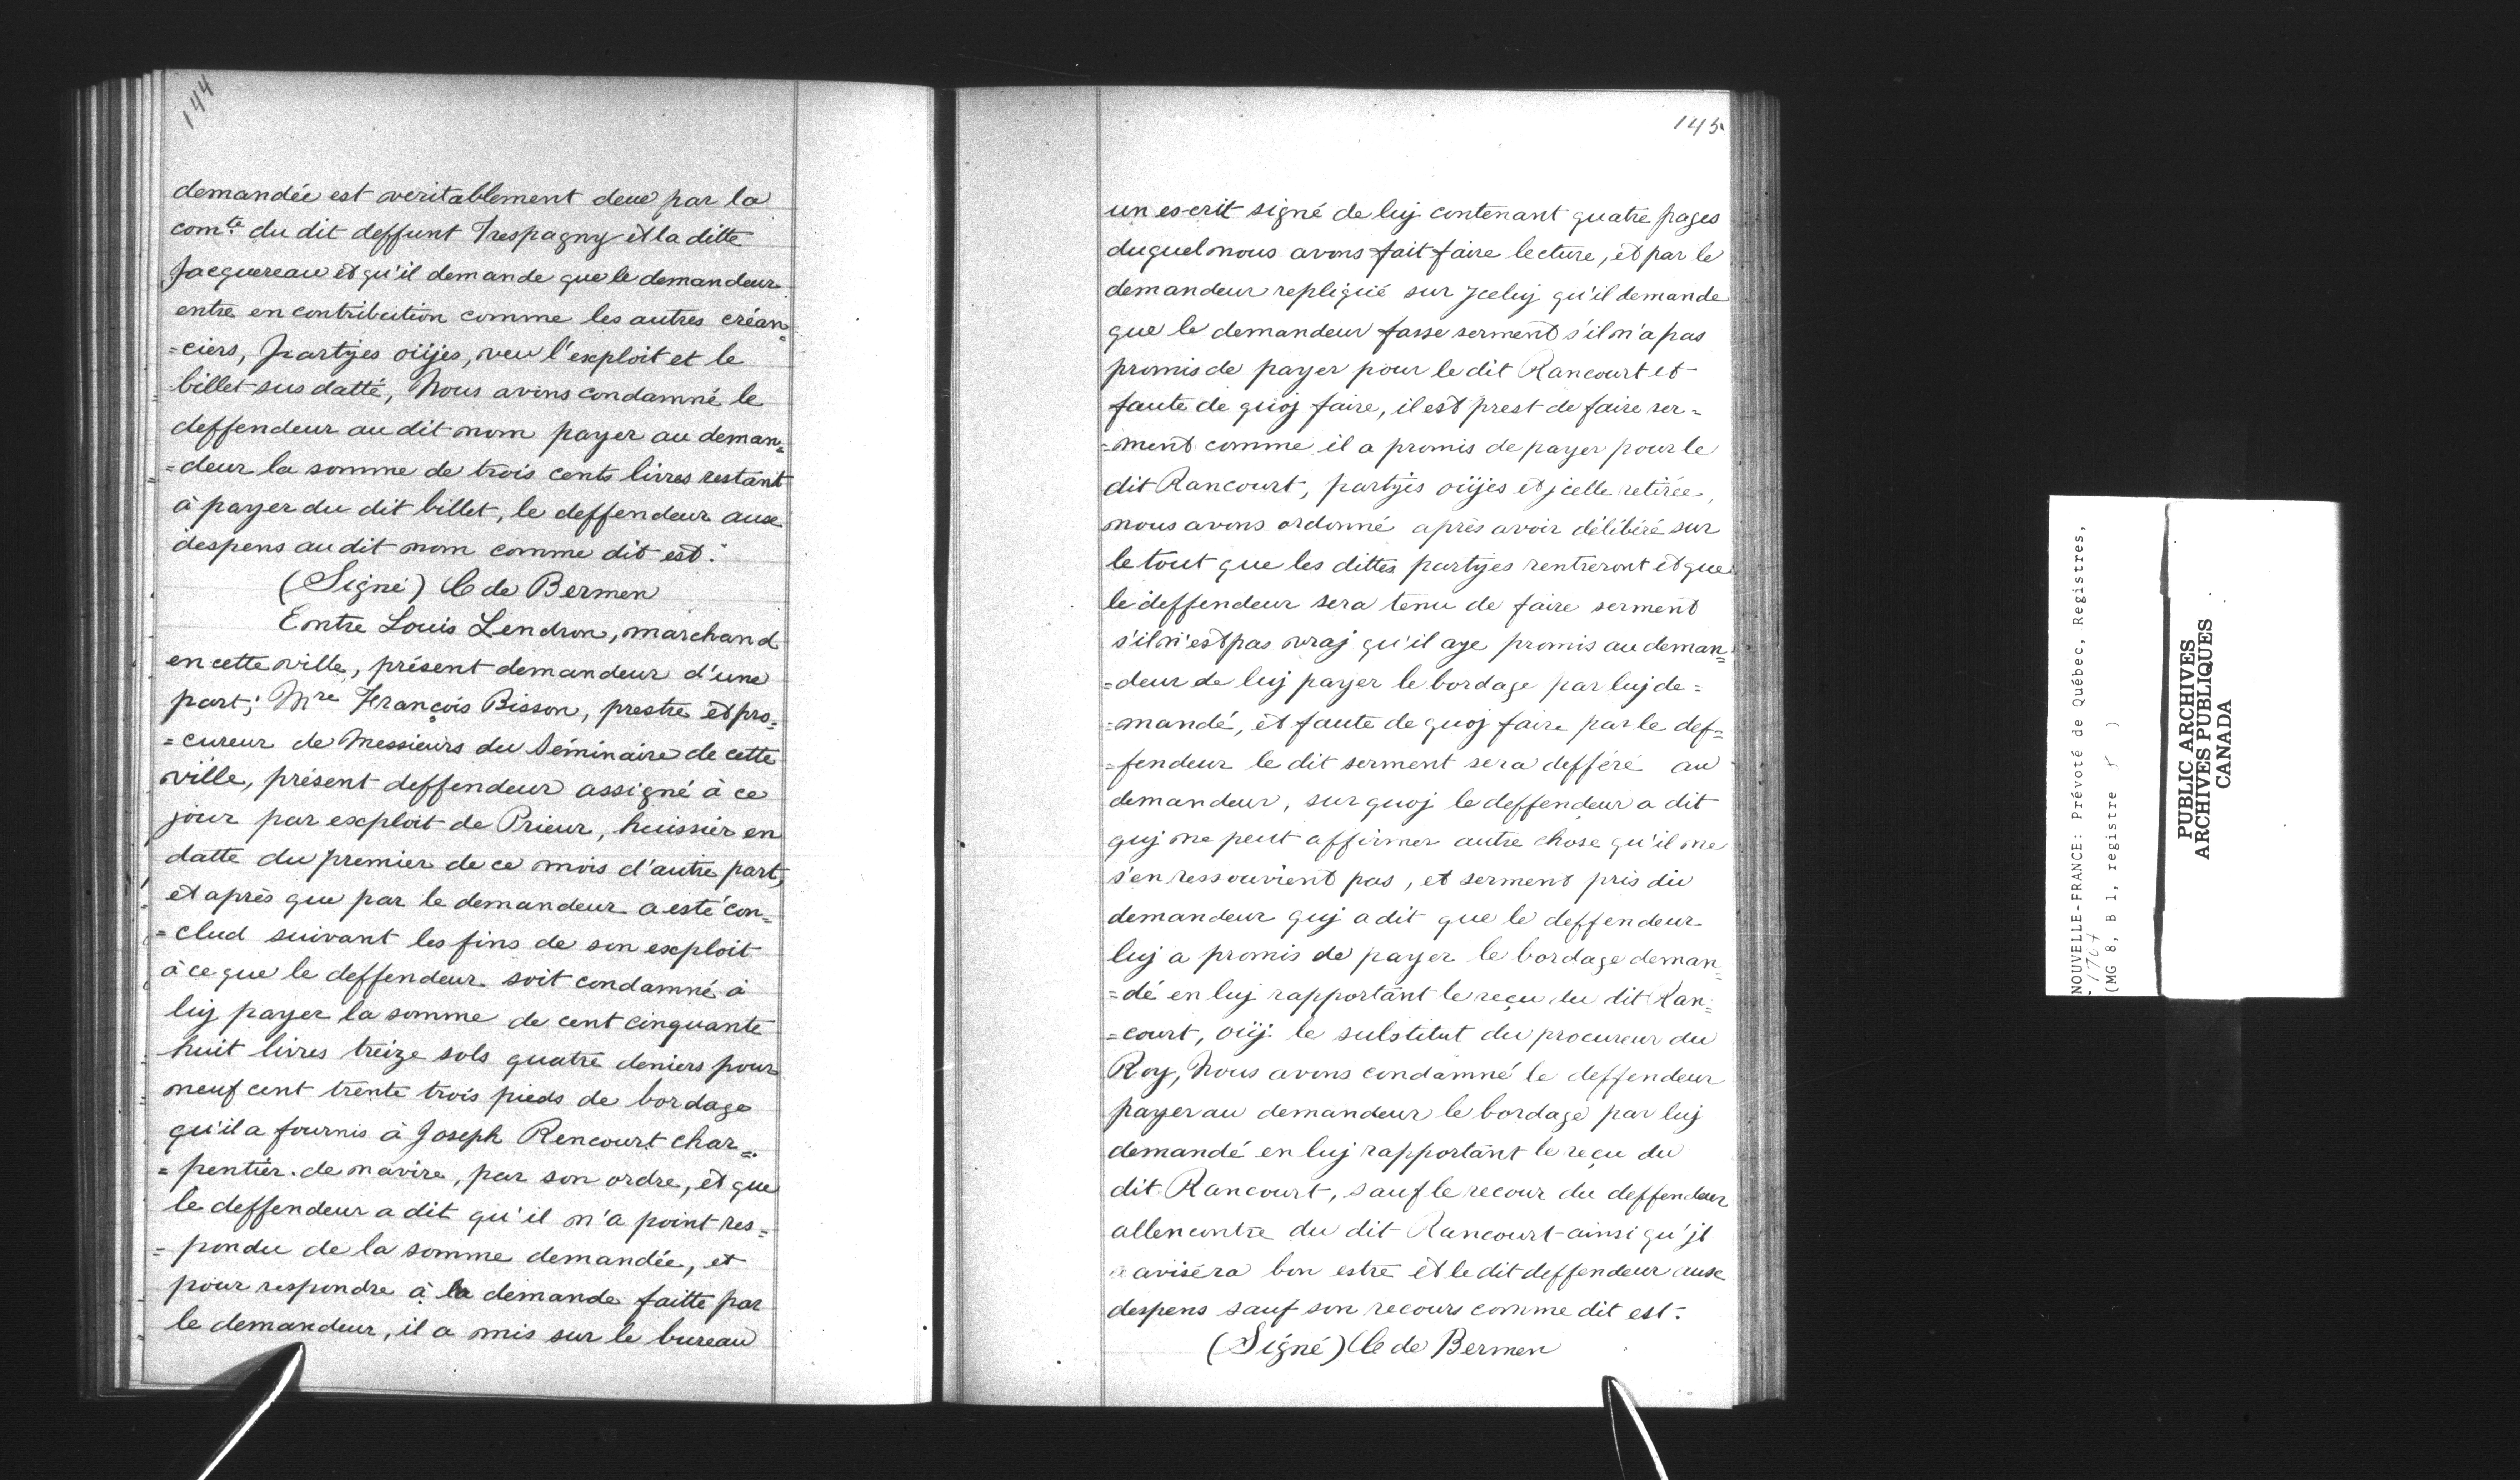 144
demandée est veritablement deue par la
com.te du dit deffunt Trespagny et la ditte
Jacquereau et qu'il demande que le demandeur
entre en contribution comme les autres créan=
=ciers, Partyes oüjes, veu l'exploit et le
billet sus datté, Nous avons condamné le
deffendeur au dit nom payer au deman=
=deur la somme de trois cents livres restant
à payer du dit billet, le deffendeur aux
despens au dit nom comme dit est.
(Signé) C de Bermen
Entre Louis Lendron, marchand
en cette ville, présent demandeur d'une
part; Mre François Bisson, prestre et pro=
=cureur de Messieurs du Séminaire de cette
ville, présent deffendeur assigné à ce
jour par exploit de Prieur, huissier en
datte du premier de ce mois d'autre part,
et après que par le demandeur a esté con=
=clud suivant les fins de son exploit
à ce que le deffendeur soit condamné à
luy payer la somme de cent cinquante
huit livres treize sols quatre deniers pour
neuf cent trente trois pieds de bordage
qu'il a fournis à Joseph Rencourt char=
=pentier de navire, par son ordre, et que
le deffendeur a dit qu'il n'a point res=
=pondu de la somme demandée, et
pour respondre à la demande faitte par
le demandeur, il a mis sur le bureau
145
un escrit signé de luj contenant quatre pages
duquel nous avons fait faire lecture, et par le
demandeur repliqué sur Jceluj qu'il demande
que le demandeur fasse serment s'il n'a pas
promis de payer pour le dit Rancourt et
faute de quoj faire, il est prest de faire ser=
=ment comme il a promis de payer pour le
dit Rancourt, partyes oüjes et jcelle retirée,
nous avons ordonné après avoir délibéré sur
le tout que les dittes partyes rentreront et que
le deffendeur sera tenu de faire serment
s'il n'est pas vraj qu'il aye promis au deman=
=deur de luj payer le bordage par luj de=
=mandé, et faute de quoj faire par le def=
=fendeur le dit serment sera defféré au
demandeur, sur quoj le deffendeur a dit
quj ne peut affirmer autre chose qu'il ne
s'en ressouvient pas, et serment pris du
demandeur quj a dit que le deffendeur
luj a promis de payer le bordage deman=
=dé en luj rapportant le reçu du dit Ran=
=court, oüj le substitut du procureur du
Roy, Nous avons condamné le deffendeur
payer au demandeur le bordage par luj
demandé en luj rapportant le reçu du
dit Rancourt, sauf le recour du deffendeur
allencontre du dit Rancourt ainsi qu'jl
avisera bon estre et le dit deffendeur aux
despens sauf son recours comme dit est.
(Signé) C de Bermen
NOUVELLE-FRANCE: Prévoté de Québec, Registres,
1704
(MG 8, B 1, registre )
PUBLIC ARCHIVES
ARCHIVES PUBLIQUES
CANADA